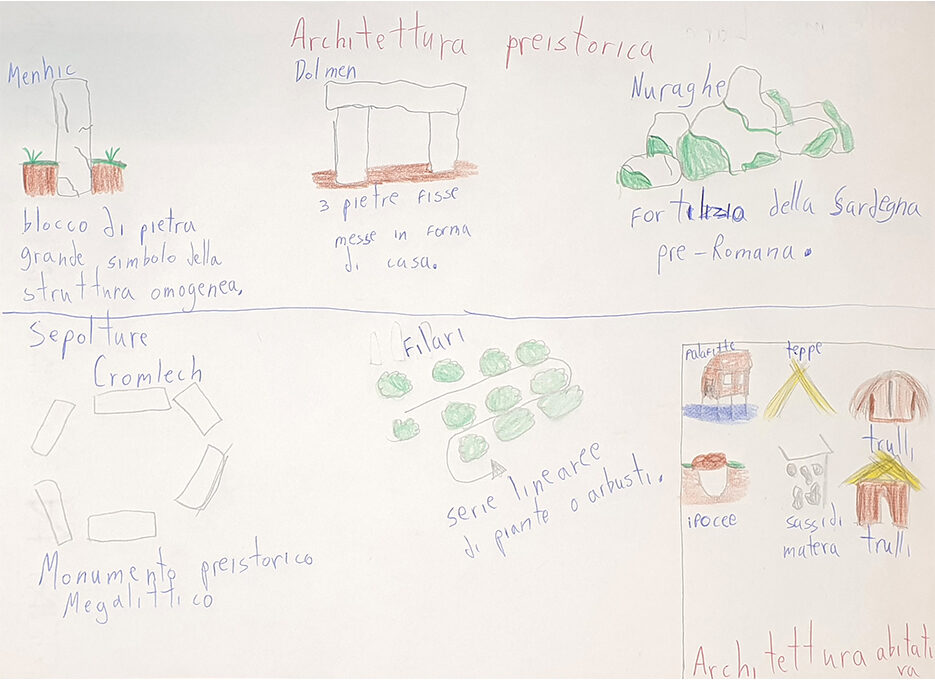 Architettura preistorica
Menhic
blocco di pietra
grande simbolo della
struttura omogenea.
Dolmen
3 pietre fisse
messe in forma
di casa.
Nuraghe
Fortilizio della Sardegna
pre-Romana.
Sepolture
Cromlech
Monumento preistorico
Megalittico
Filari
serie linearee
di piante o arbusti.
palafitte
teppe
trulli
ipocee
sassi di
matera
trulli
Architettura abitati
va